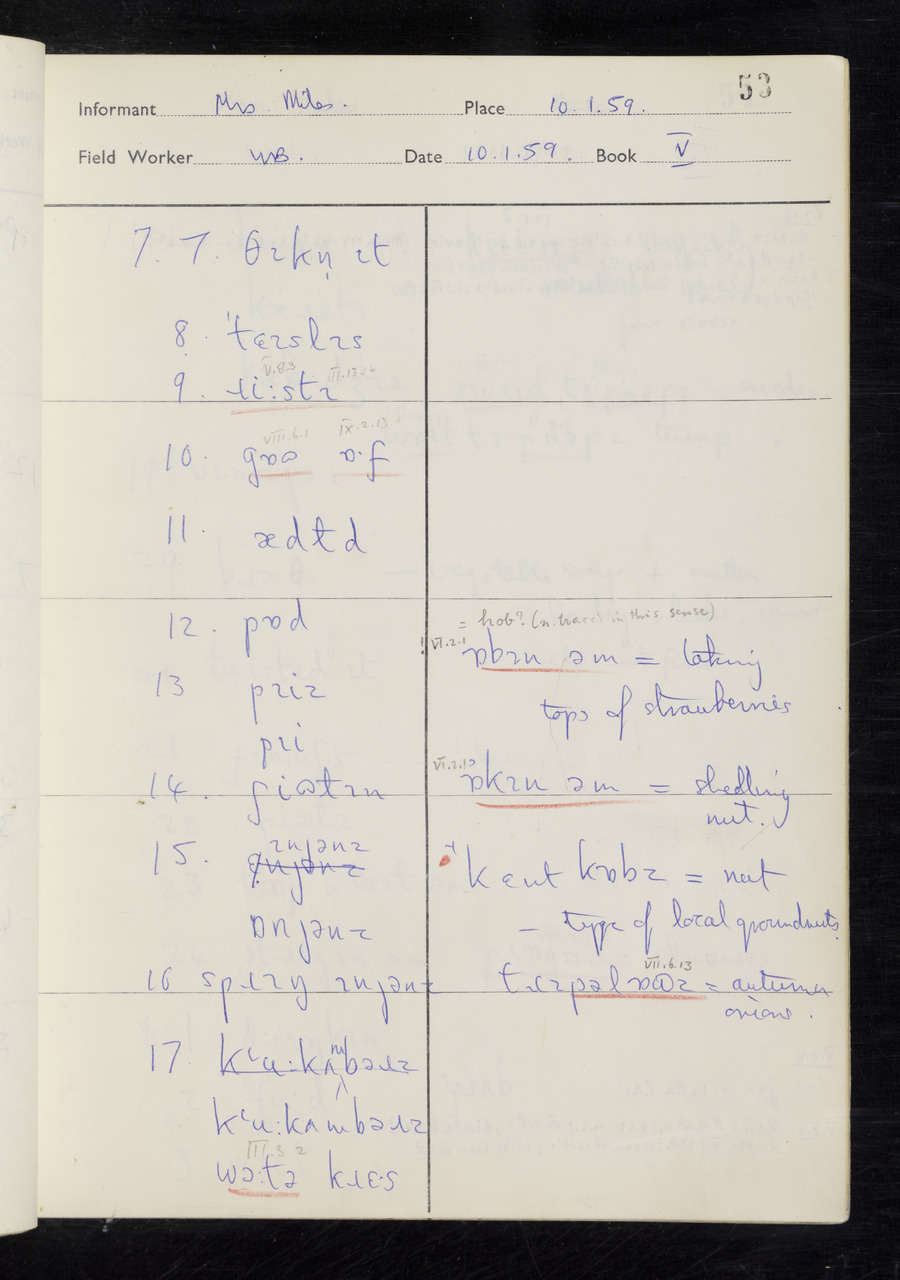 53
Informant Mrs. Miles. Place 10.1.59.
Field Worker WB. Date 10.1.59. Book V
7. 7. θɪkn̩ ɪt
8. ˈtɛɪslɪs
9. ɹi:stɪ
V.8.3
10. gɒɷ ɒ·f
VIII.6.1 IX.2.13
11. ædtd
12. pɒd
13 pɪiz
pɪi
14.
15. ɪnjənz
ɒnjənz
16 spɹɪŋ ɪnjənz
17. kʻu:kʌmbəɹz
kʻu:kʌmbəɹz
III.3 2
wə:tə kɹɛ·s
= hob? (n. traced in this sense)
! VI.2.1
ɒbɪn əm = taking
tops of strawberries
ɒkɪn əm = shelling
nut.
+ kɛnt kɒbz = nut
– type of local groundnuts.
VII.6.13
= autumn
onions.